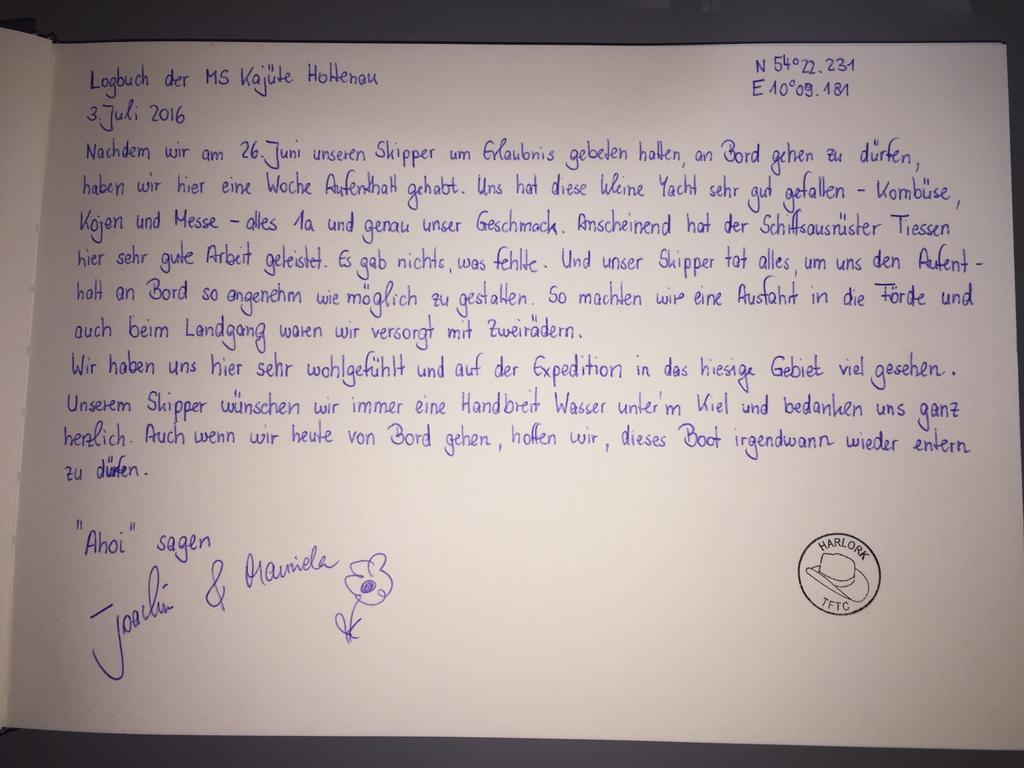 Logbuch der MS Kajüte Holtenau
N 54°22.231
E 10°09.181
3. Juli 2016
Nachdem wir am 26. Juni unseren Skipper um Erlaubnis gebeten hatten, an Bord gehen zu dürfen,
haben wir hier eine Woche Aufenthalt gehabt. Uns hat diese kleine Yacht sehr gut gefallen - Kombüse,
Kojen und Messe - alles 1a und genau unser Geschmack. Anscheinend hat der Schiffsausrüster Tiessen
hier sehr gute Arbeit geleistet. Es gab nichts, was fehlte. Und unser Skipper tat alles, um uns den Aufent-
halt an Bord so angenehm wie möglich zu gestalten. So machten wir eine Ausfahrt in die Förde und
auch beim Landgang waren wir versorgt mit Zweirädern.
Wir haben uns hier sehr wohlgefühlt und auf der Expedition in das hiesige Gebiet viel gesehen.
Unserem Skipper wünschen wir immer eine Handbreit Wasser unter'm Kiel und bedanken uns ganz
herzlich. Auch wenn wir heute von Bord gehen, hoffen wir, dieses Boot irgendwann wieder entern
zu dürfen.
"Ahoi" sagen
Joachim & Manuela
HARLORK
TFTC